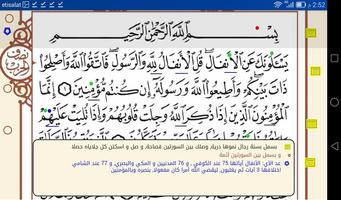 etisalat
2:52
بِسْمِ ٱللَّهِ ٱلرَّحْمَٰنِ ٱلرَّحِيمِ
يَسْـَٔلُونَكَ عَنِ ٱلْأَنفَالِ قُلِ ٱلْأَنفَالُ لِلَّهِ وَٱلرَّسُولِ فَٱتَّقُوا۟ ٱللَّهَ وَأَصْلِحُوا۟
ذَاتَ بَيْنِكُمْ وَأَطِيعُوا۟ ٱللَّهَ وَرَسُولَهُۥٓ إِن كُنتُم مُّؤْمِنِينَ ۝ إِنَّمَا
ٱلْمُؤْمِنُونَ ٱلَّذِينَ إِذَا ذُكِرَ ٱللَّهُ وَجِلَتْ قُلُوبُهُمْ وَإِذَا تُلِيَتْ عَلَيْهِمْ
بسمل بسنة رجال نموها درية، وصلك بين السورتين فصاحة، و صل و اسكتن كل جلاياه حصلا
و بسمل بين السورتين أئمة
عد الآي: الأنفال آياتها 75 عند الكوفي، و 76 المدنيين و المكي والبصري، و 77 عند الشامي
اختلافها 3 آيات ثم يغلبون، ليقضي الله أمرا كان مفعولا، بنصره وبالمؤمنين